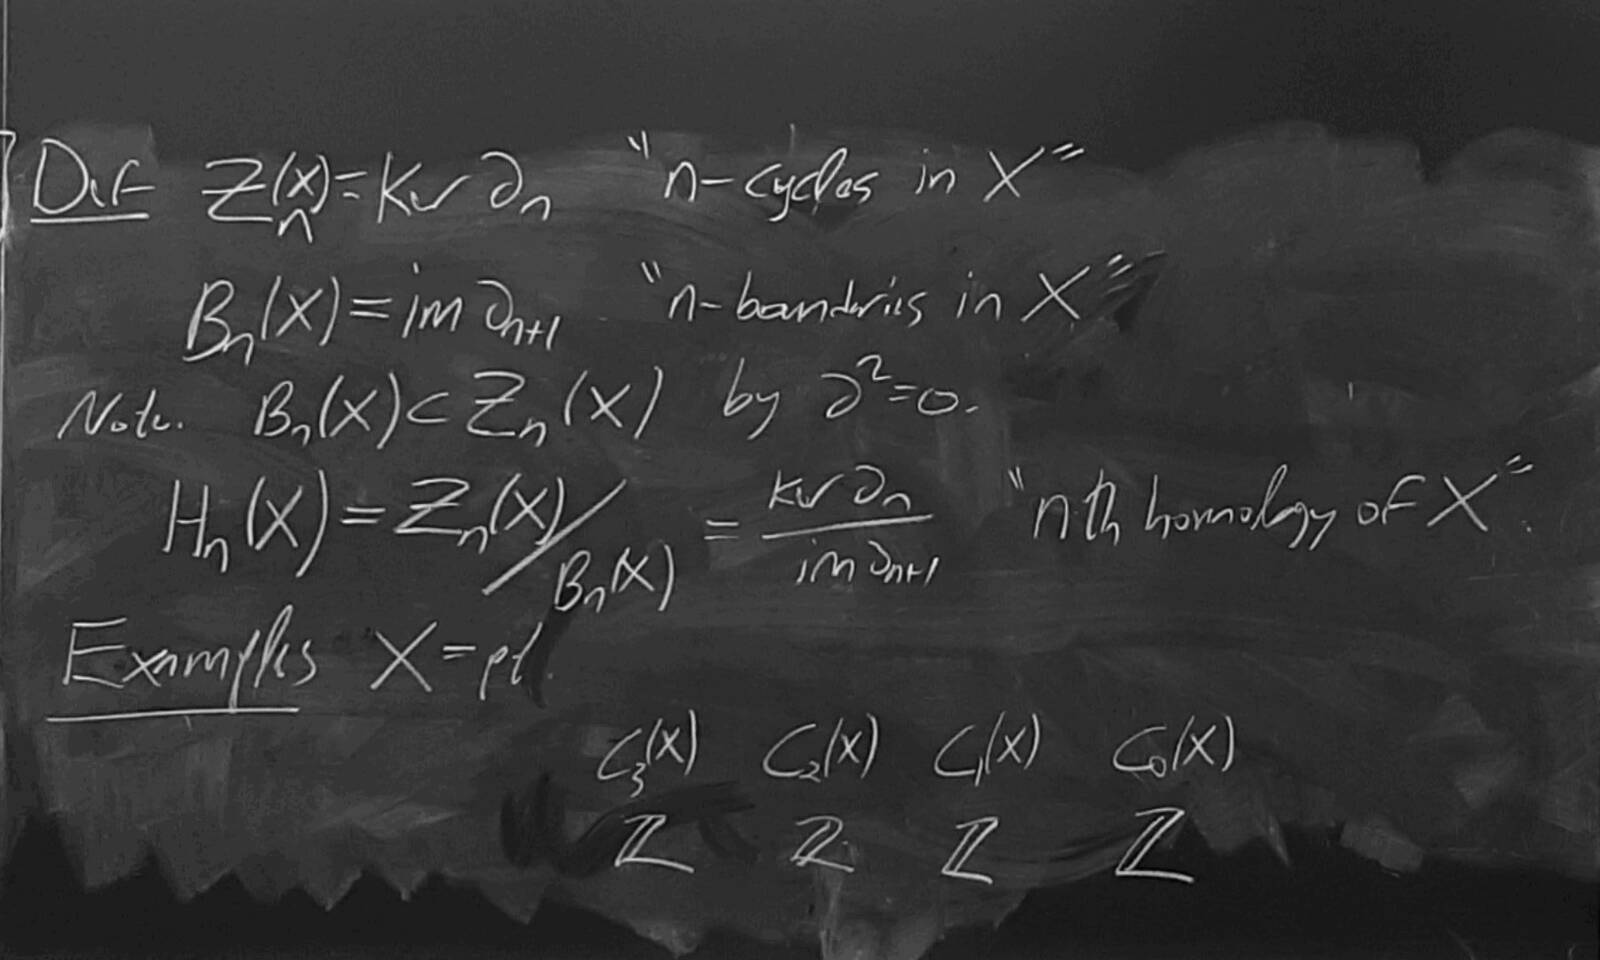 Def Zₙ(X) = Ker ∂ₙ "n-cycles in X"
Bₙ(X) = im ∂ₙ₊₁ "n-boundaries in X"
Note. Bₙ(X) ⊂ Zₙ(X) by ∂² = 0.
Hₙ(X) = Zₙ(X) / Bₙ(X) = ker ∂ₙ / im ∂ₙ₊₁ "nth homology of X".
Examples X = pt.
C₃(X) C₂(X) C₁(X) C₀(X)
ℤ ℤ ℤ ℤ